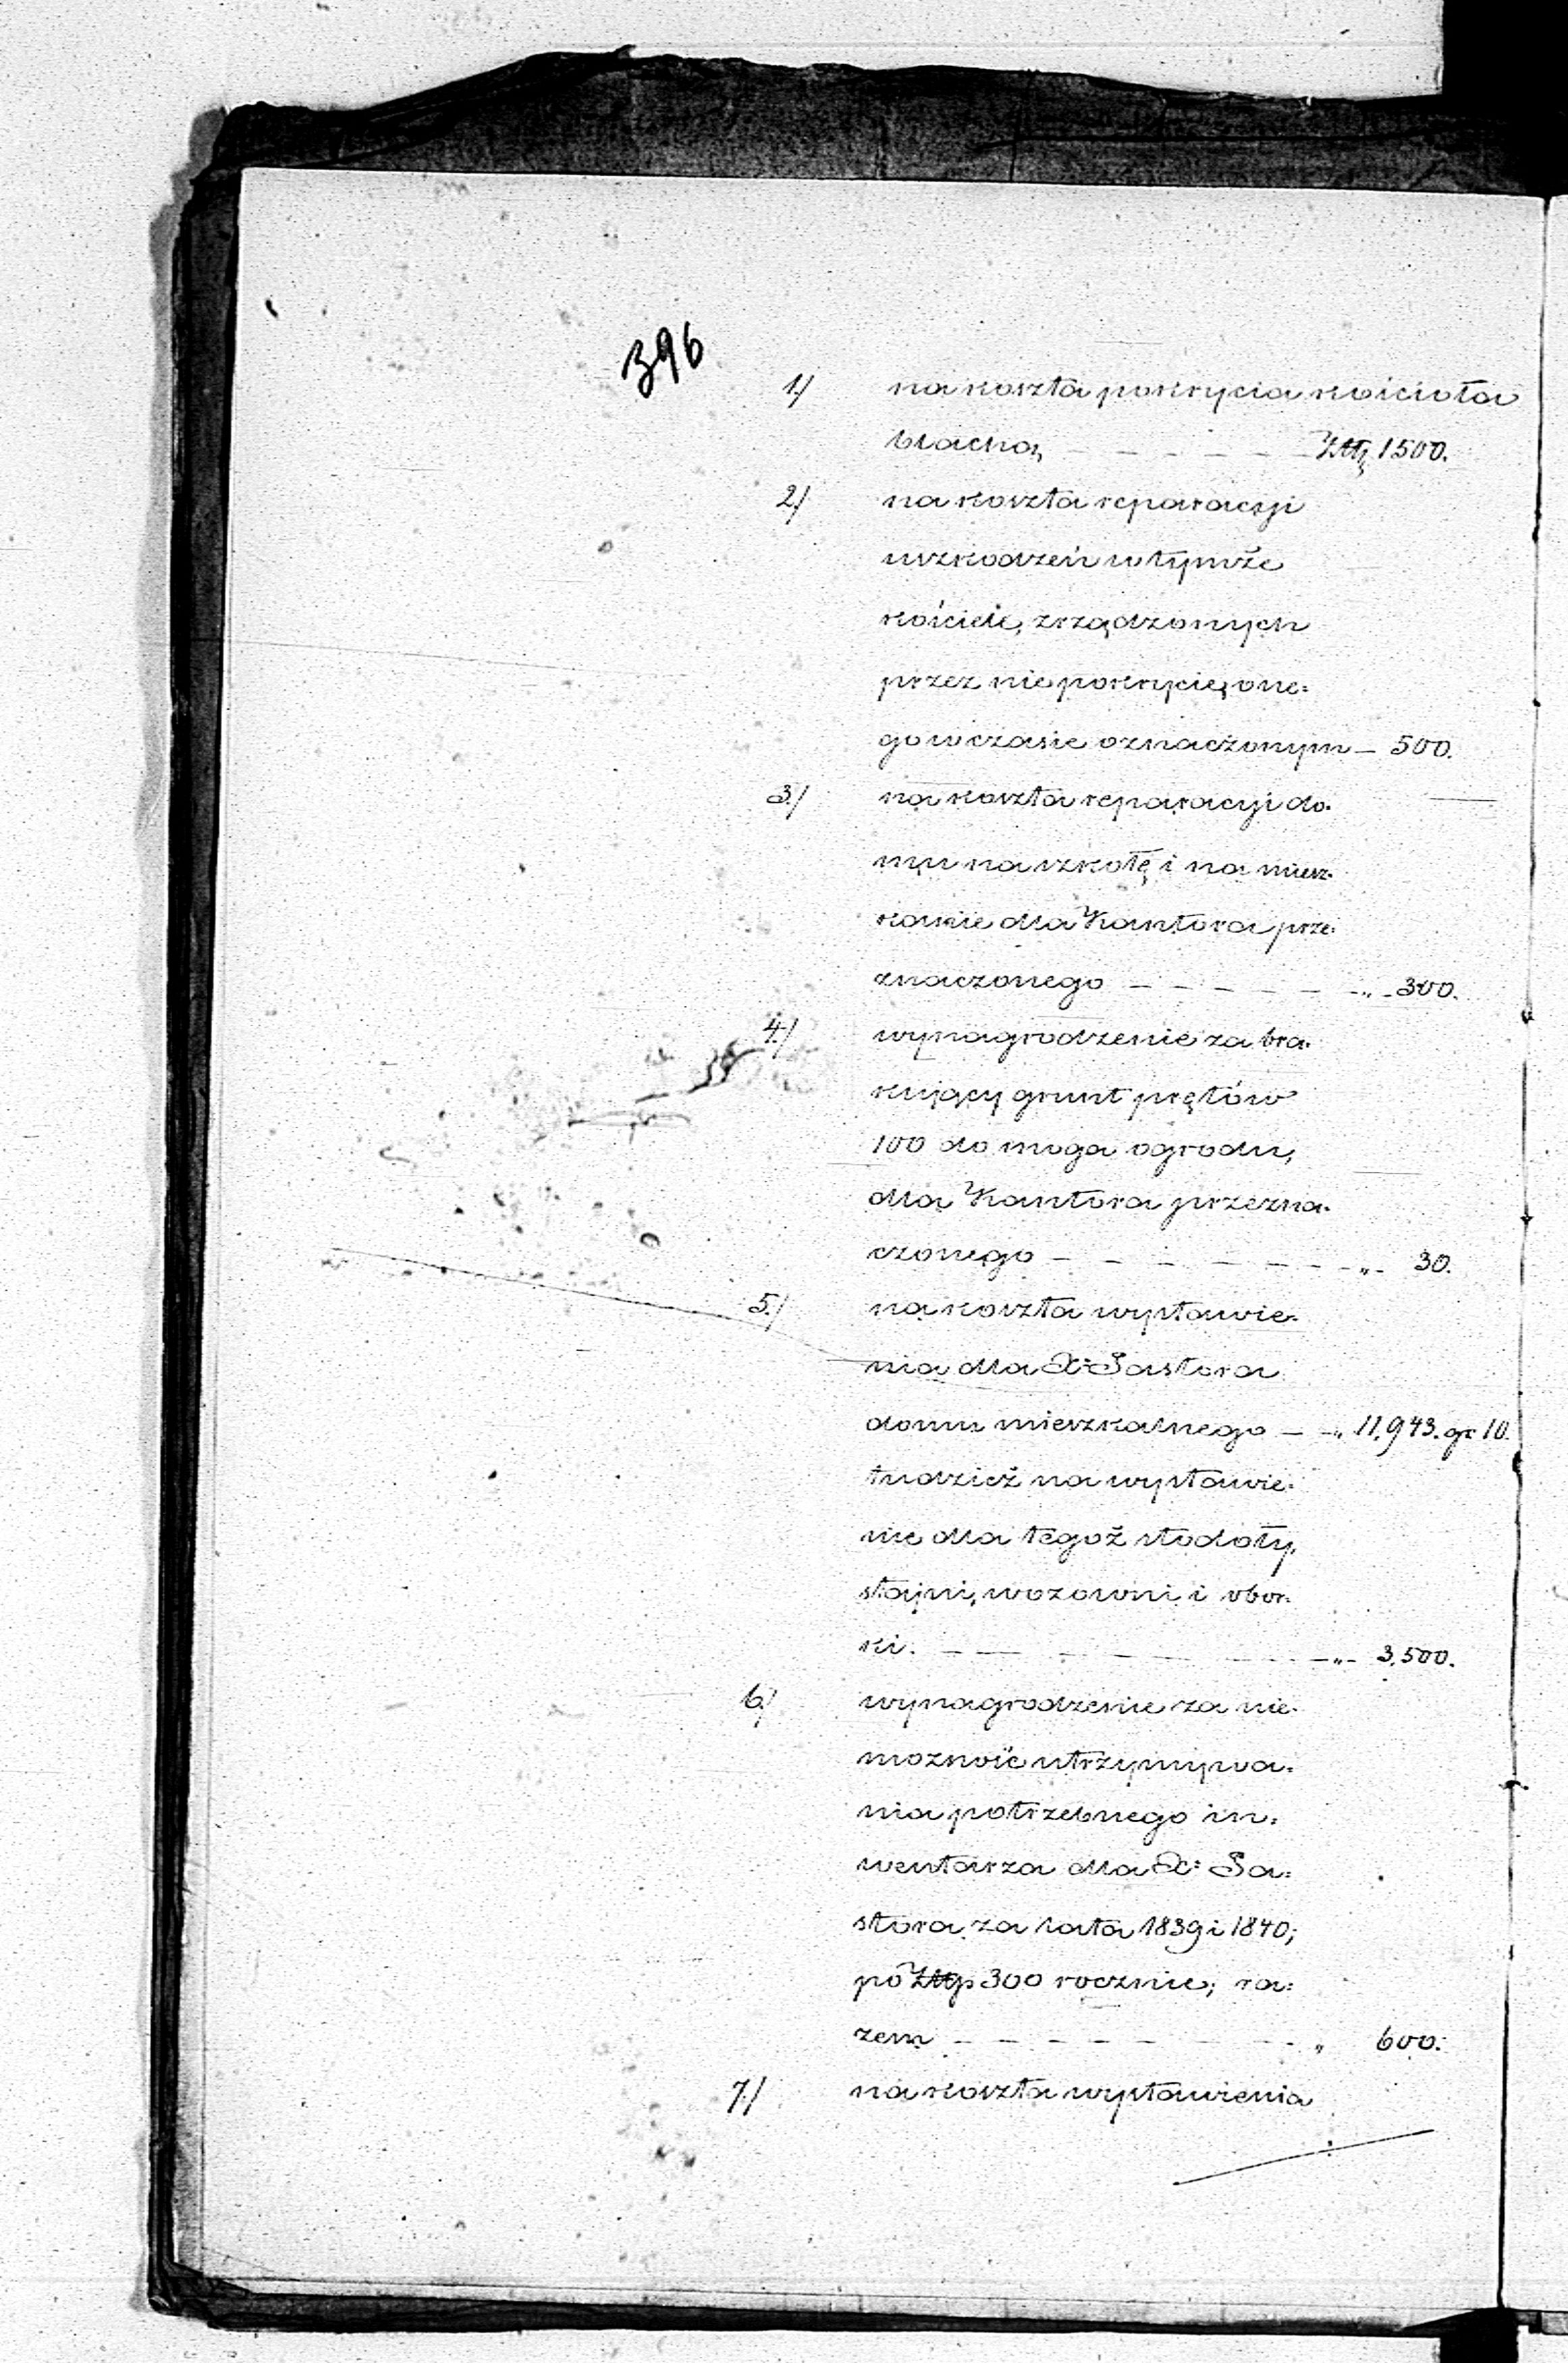 396
1./ na koszta pokrycia kościoła
blachą — — — — — Złtp. 1500.
2./ na koszta reparacyi
uszkodzeń w tymże
kościele, zrządzonych
przez niepokrycie, one=
go w czasie oznaczonym — 500.
3./ na koszta reparacyi do=
mu na szkołę i na miesz=
kanie dla Kantora prze=
znaczonego — — — — — „ — 300.
4./ wynagrodzenie za bra=
kujący grunt prętów
100 do moga ogrodu,
dla Kantora przezna=
czonego — — — — — — „ — 30.
5./ na koszta wystawie=
nia dla X: Pastora
domu mieszkalnego — — „ 11,943. gr 10.
tudzież na wystawie=
nie dla tegoż stodoły,
stajni, wozowni i obor=
ki. — — — — — — „ — 3,500.
6./ wynagrodzenie za nie=
możność utrzymywa=
nia potrzebnego in=
wentarza dla X: Pa=
stora za lata 1839 i 1840;
po Złtp 300 rocznie; ra=
zem — — — — — — — „ 600.
7./ na koszta wystawienia